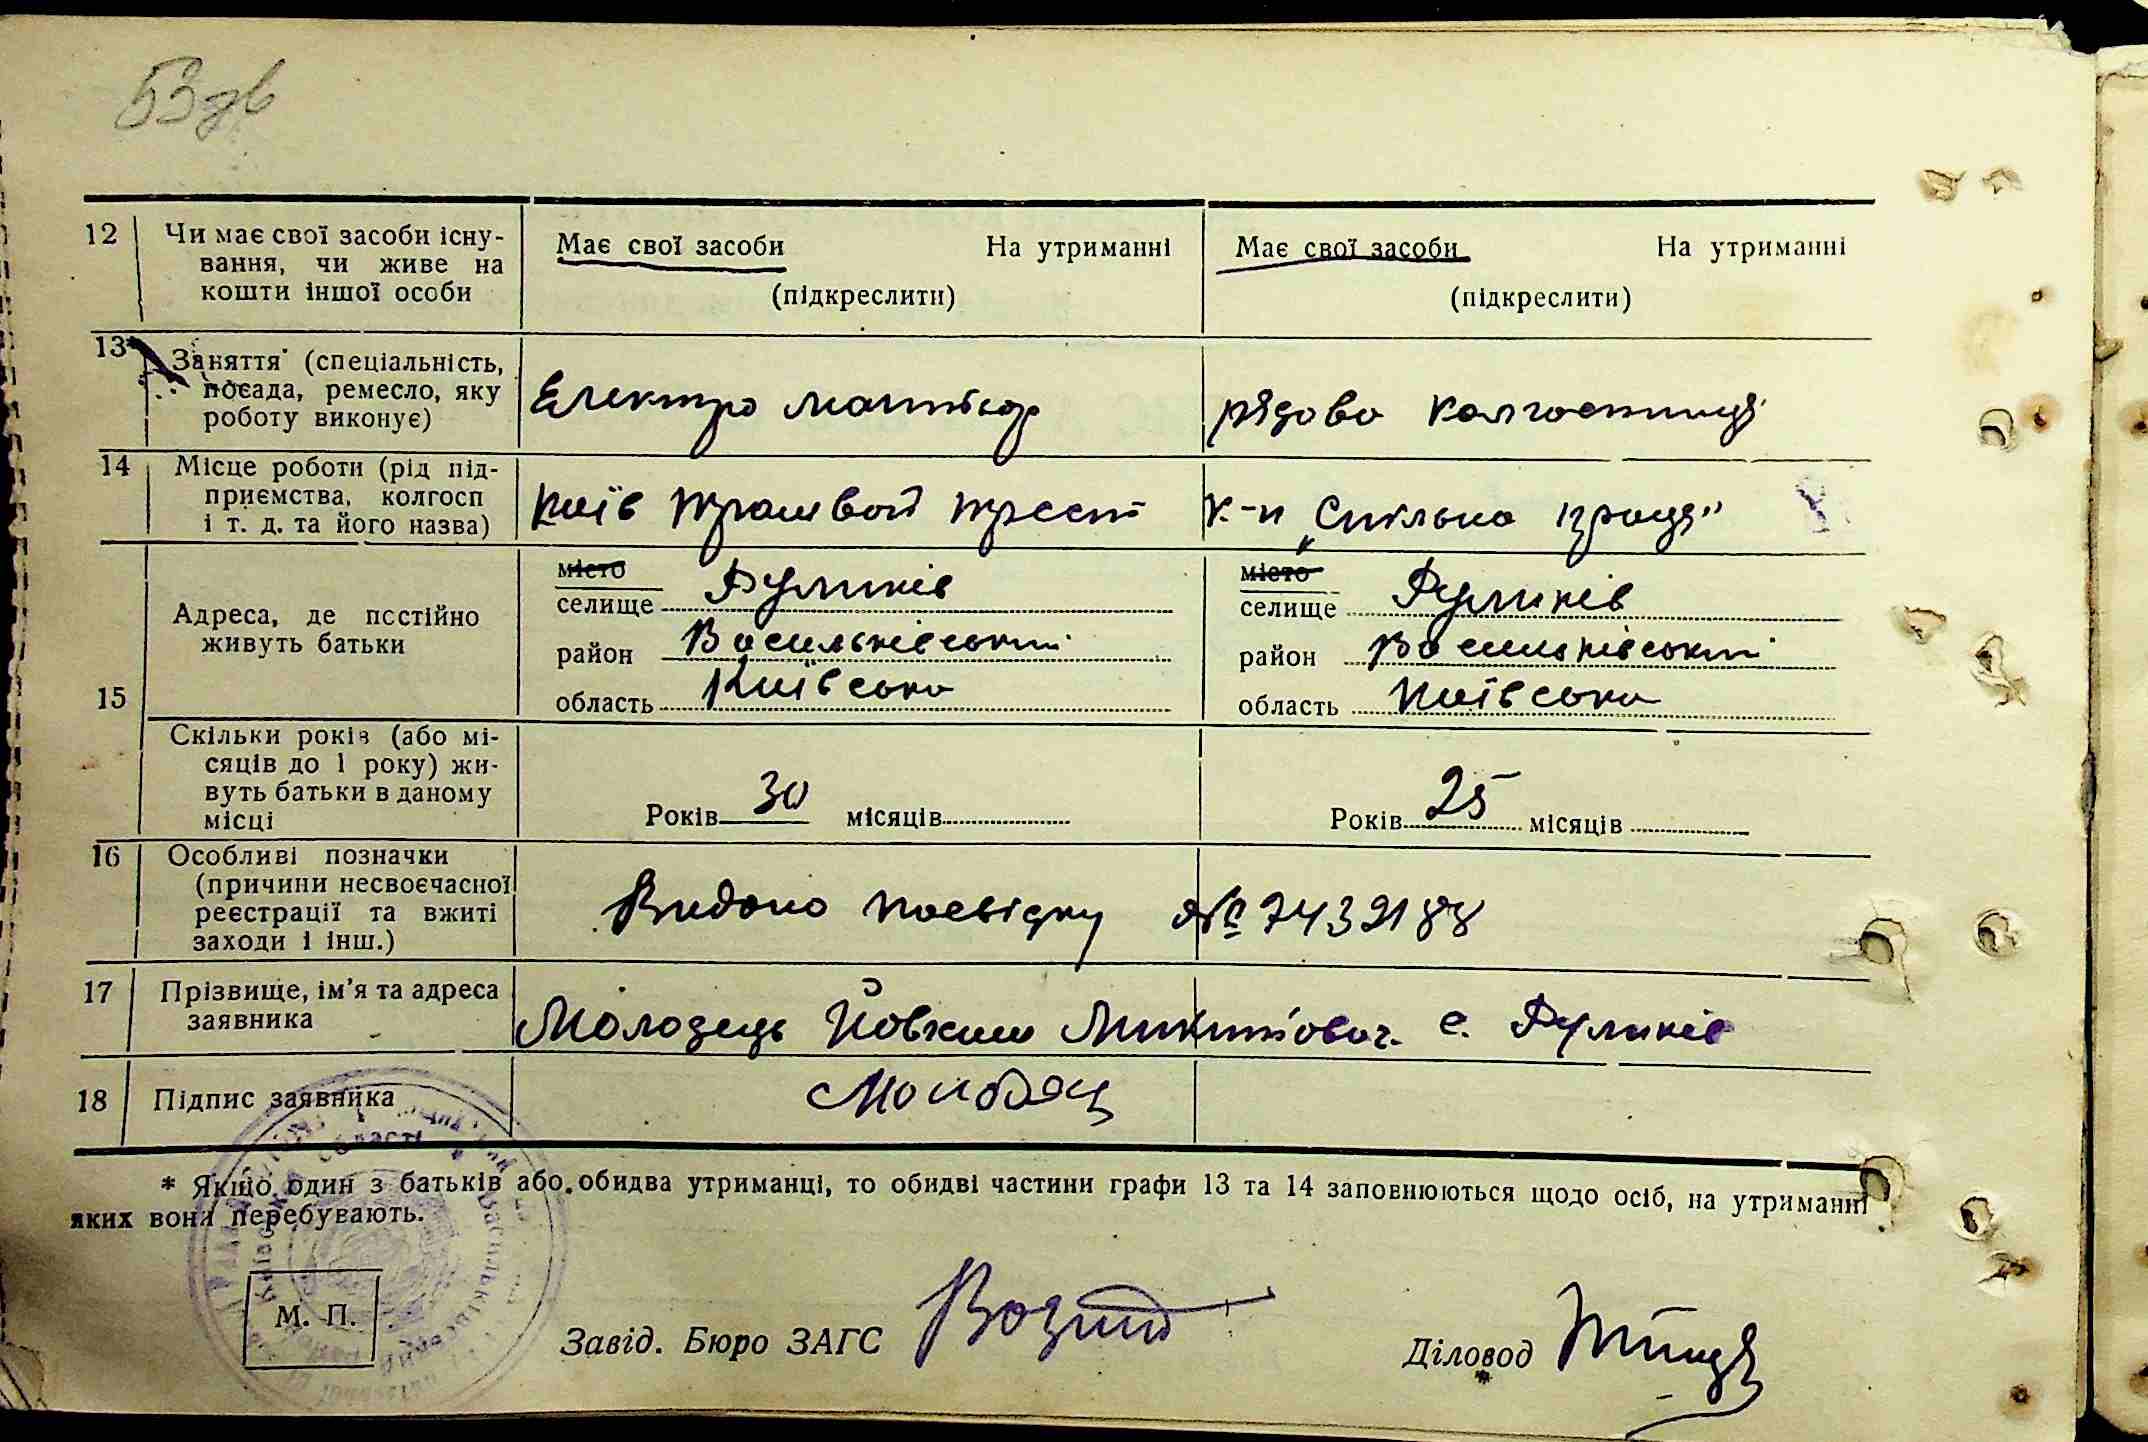 53зв
12 Чи має свої засоби існу-
вання, чи живе на
кошти іншої особи
Має свої засоби На утриманні
(підкреслити)
Має свої засоби На утриманні
(підкреслити)
13 Заняття* (спеціальність,
посада, ремесло, яку
роботу виконує)
Електро монтйор
рядова колгоспниця
14 Місце роботи (рід під-
приємства, колгосп
і т. д. та його назва)
Київ трамвай трест
к-п „Спільна праця"
15
Адреса, де постійно
живуть батьки
місто
селище Руликів
район Васильківський
область Київська
місто
селище Руликів
район Васильківський
область Київська
Скільки років (або мі-
сяців до 1 року) жи-
вуть батьки в даному
місці
Років 30 місяців
Років 25 місяців
16 Особливі позначки
(причини несвоєчасної
реєстрації та вжиті
заходи і інш.)
Видано посвідку № 7439188
17 Прізвище, ім'я та адреса
заявника
Молодець Йовхим Микитович. с. Руликів
18 Підпис заявника
* Якщо один з батьків або обидва утриманці, то обидві частини графи 13 та 14 заповнюються щодо осіб, на утриманні
яких вони перебувають.
М. П.
Завід. Бюро ЗАГС
Діловод